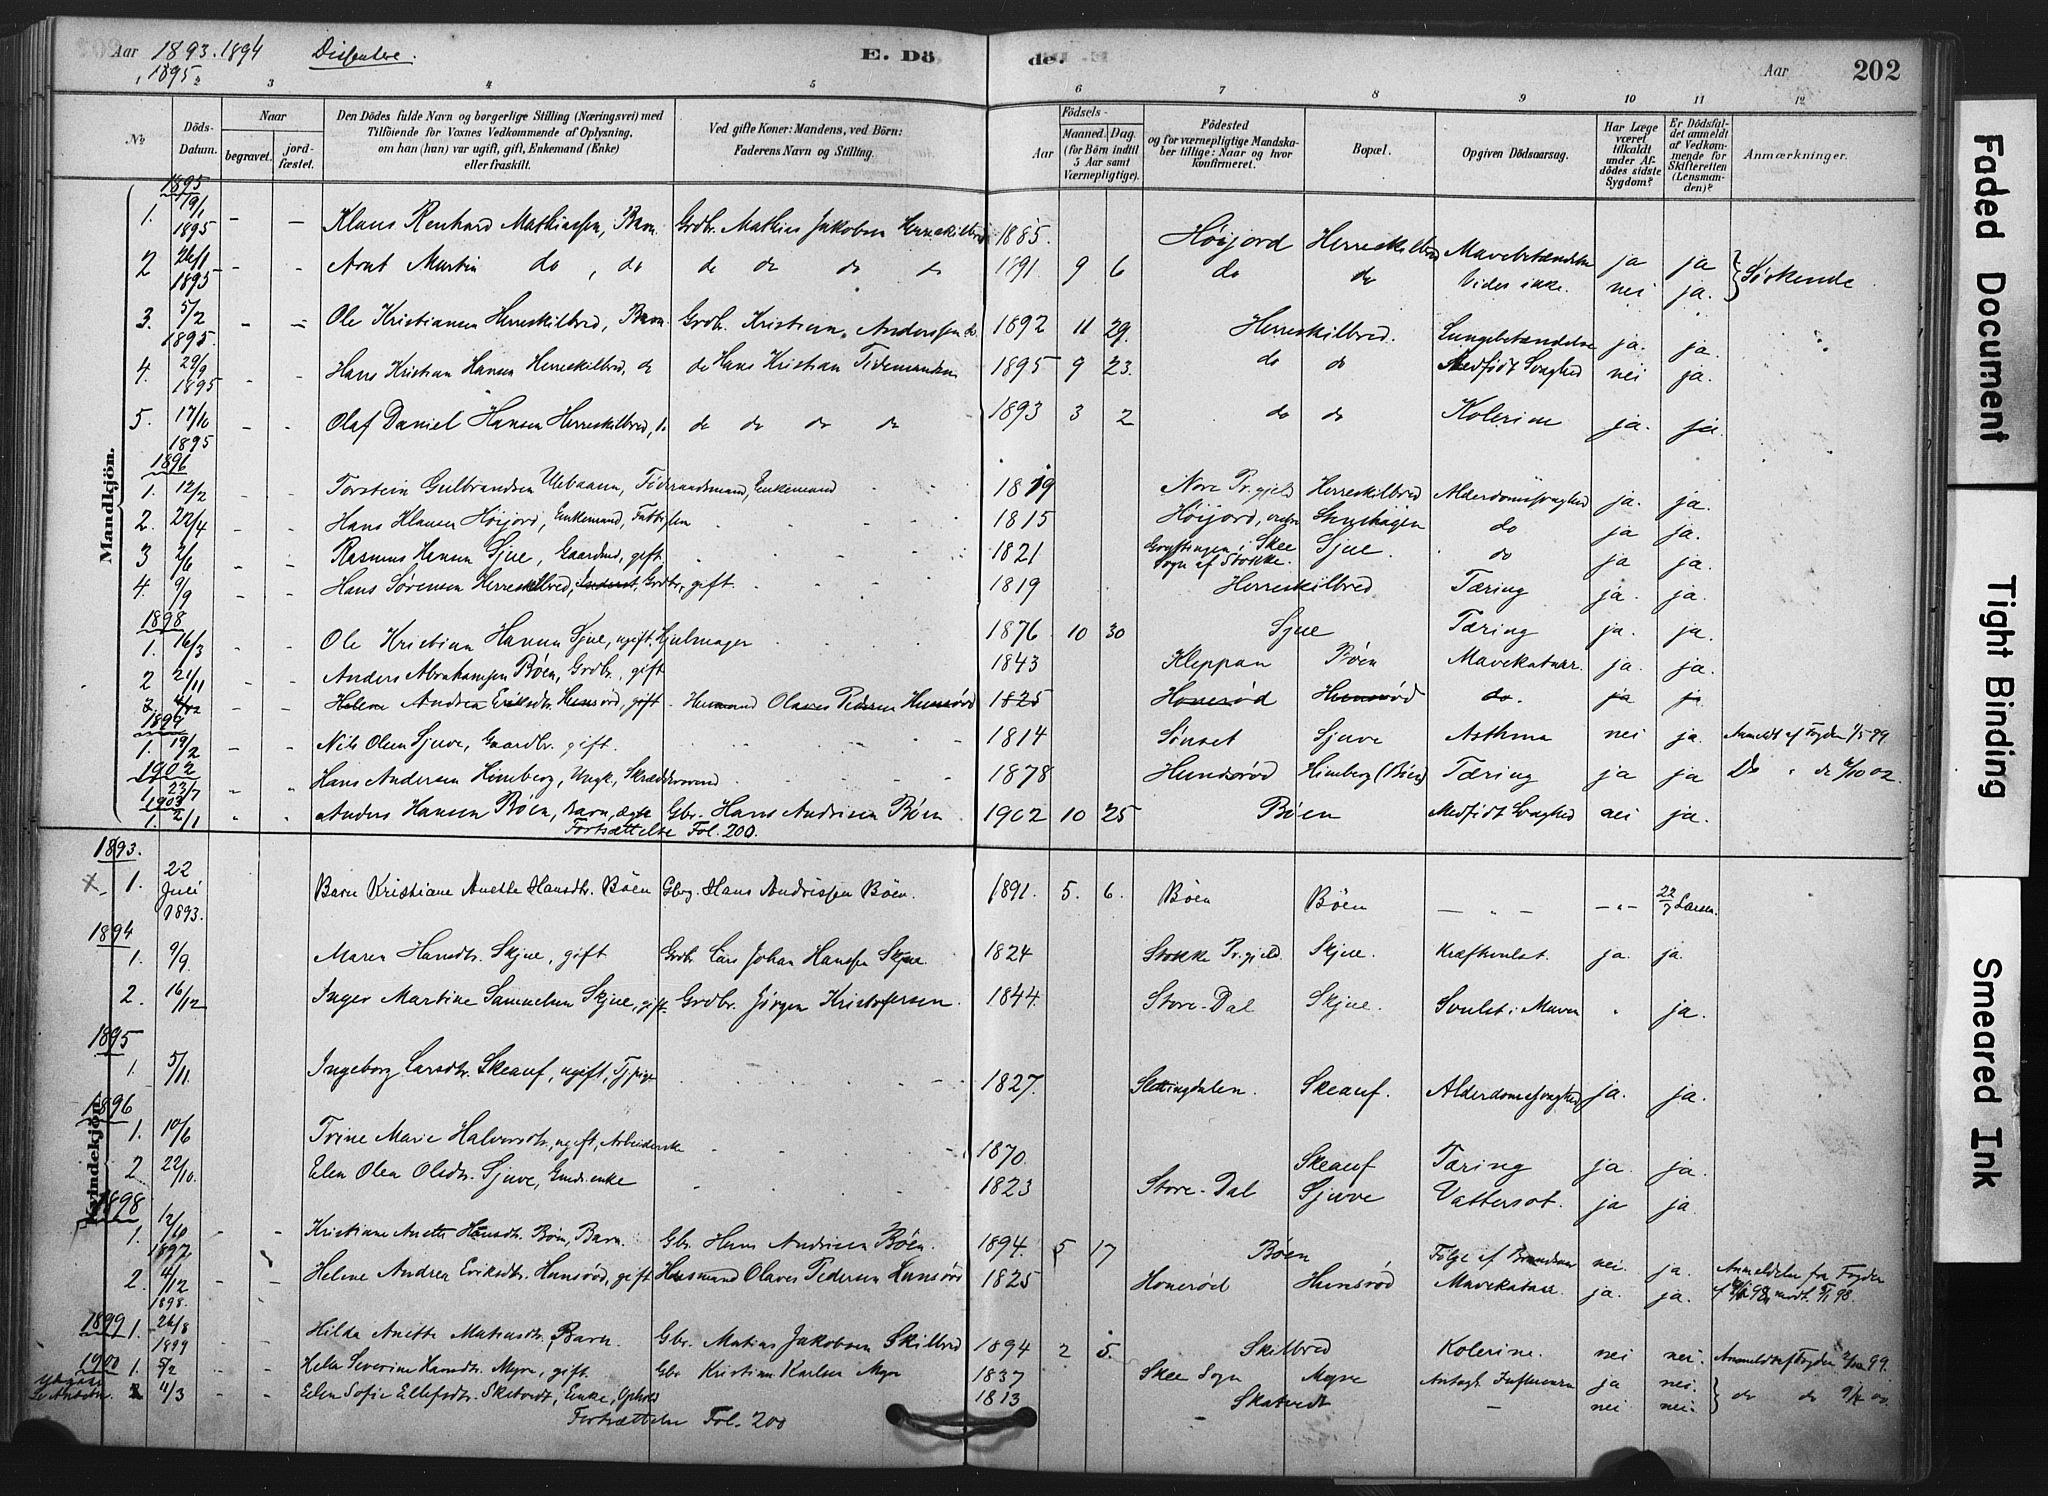 Aar 1893. 1894 Dissentere. E. Dö de. Aar 202
1895
3 4 5 6 7 8 9 10 11 12
No Döds-Datum. Naar begravet. jordfæstet. Den Dödes fulde Navn og borgerlige Stilling (Næringsvei) med Tilföiende for Voxnes Vedkommende af Oplysning, om han (hun) var ugift, gift, Enkemand (Enke) eller fraskilt. Ved gifte Koner: Mandens, ved Börn: Faderens Navn og Stilling. Födsels- Aar Maaned. Dag. (for Börn indtil 5 Aar samt Værnepligtige). Födested og for værnepligtige Mandskaber tillige: Naar og hvor konfirmeret. Bopæl. Opgiven Dödsaarsag. Har Læge været tilkaldt under Afdödes sidste Sygdom? Er Dödsfaldet anmeldt af Vedkommende for Skifteretten (Lensmanden)? Anmærkninger.
Mandkjön.
1895
1. 19/1 1895 - - Klaus Renhard Mathiassen, Barn Grdbr. Mathias Jakobsen Herreskilbred 1885. Höijord Herreskilbred Mavebetændelse ja ja } Söskende
2 26/1 1895 - - Arnt Martin do, do do do do do 1891. 9 6 do do Vides ikke. nei ja.
3. 5/2 1895. - - Ole Kristiansen Herreskilbred, Barn Grdb. Kristian Anderssen do. 1892 11 29. Herreskilbred. Lungebetændelse ja. ja.
4. 29/9 1895 - - Hans Kristian Hansen Herreskilbred, do do Hans Kristian Tidemandsen 1895 9 23. do do Medfödt Svaghed nei ja.
5. 17/10 1895 - - Olaf Daniel Hansen Herreskilbred, do do do do do 1893 3 2 do do Kolerine ja. ja.
1896
1. 12/2 - - Torstein Gulbrandsen Uebaann, Föderaadsmand, Enkemand 1819 Nore Pr.gjeld Herreskilbred Alderdomssvaghed ja. ja.
2. 22/4 - - Hans Klausen Höijord, Enkemand, Fattiglem 1815 Höijord, vestre do ja ja.
3 2/6 - - Rasmus Hansen Sjue, Gaardmd, gift. 1821 i Skee Sogn af Stokke. Sjue. do ja ja.
4. 9/9 - - Hans Sörensen Herreskilbred, Inderst, Grdbr, gift. 1819 Herreskilbred Tæring ja. ja.
1898
1. 16/3 - - Ole Kristian Hansen Sjue, ugift. Hjulmager 1876 10 30 Sjue Tæring ja. ja.
2 21/11 - - Anders Abrahamsen Böen, Grdbr., gift 1843 Kleppan Böen Mavekatarr. ja. ja.
3. 4/12 Helene Andrea Eriksdtr. Hunsröd, gift. Husmand Olaves Pedersen Hunsröd 1825 Honeröd Hunsröd do. ja ja
1899
1. 19/2 - - Nils Olsen Sjuve, Gaardbr. gift. 1814 Sönset Sjuve Asthma nei ja. Anmeldt af Fogden 1/5 99.
1902
1. 23/7 Hans Andersen Himberg, Ungk., Skræddersvend 1878 Hundsröd Himberg (Böen) Tæring ja ja Do " do 4/10 02.
1903
1. 2/1 Anders Hansen Böen, Barn, ægte Gbr. Hans Andrisen Böen 1902 10 25 Böen Medfödt Svaghed nei ja.
Fortsættelse Fol. 200.
Kvindekjön.
1893.
X 1. 22 Juli 1893. Barn Kristiane Anette Hansdtr. Böen Gbrg. Hans Andrissen Böen. 1891. 5. 6. Böen Böen - " - - " - 22/7 Larsen.
1894
1. 9/9. Maren Hansdtr. Skjue, gift Grdbr. Lars Johan Hanssen Skjue 1824 Stokke Pr.gjeld. Skjue. Kræfthvulst. ja. ja.
2. 16/12 Inger Martine Samuelsen Skjue, gift. Grdbr. Jörgen Kristofersen. 1844. Store-Dal Skjue. Svulst i Maven " ja.
1895
1. 5/11. Ingeborg Larsdtr. Skeauf, ugift, Tj.pige 1827. Slettingdalen. Skeauf. Alderdomssvaghed ja. ja.
1896
1. 10/6 Trine Marie Halvorsdtr., ugift, Arbeiderske 1870. Skeauf Tæring ja. ja.
2 22/10. Elen Olea Olsdtr. Sjuve, Gmds.enke 1823 Store-Dal Sjuve Vattersot. ja ja.
1898
1. 12/10 1897 - - Kristiane Anette Hansdtr. Böen, Barn. Gbr. Hans Andrisen Böen. 1894. 5 17 Böen Fölge af Brandsaar nei. ja. Anmeldelse fra Fogden
2. 4/12 1898. - - Helene Andrea Eriksdtr. Hunsröd, gift Husmand Olaves Pedersen Hunsröd 1825 Honeröd Hunsröd Mavekatarr. ja. ja. 98. modt. 98.
1899 1. 26/8 1899 - - Hilda Anette Matiasdtr., Barn. Gbr. Matias Jakobsen Skilbred 1894 2 5. Skilbred Kolerine. nei nei. Anmeldt af Fogden 99.
1900 1. 5/2 - - Helen Severine Hansdtr. Myre, gift. Gbr Kristian Karlsen Myre 1837 Skee Sogn Myre Antagl. Influenza ja nei. } do do 9/4 00.
2 11/3 - - Elen Sofie Ellefsdtr. Skatvedt, Enke, 1813 Skatvedt - nei nei.
Fortsættelse Fol. 200
Faded Document
Tight Binding
Smeared Ink